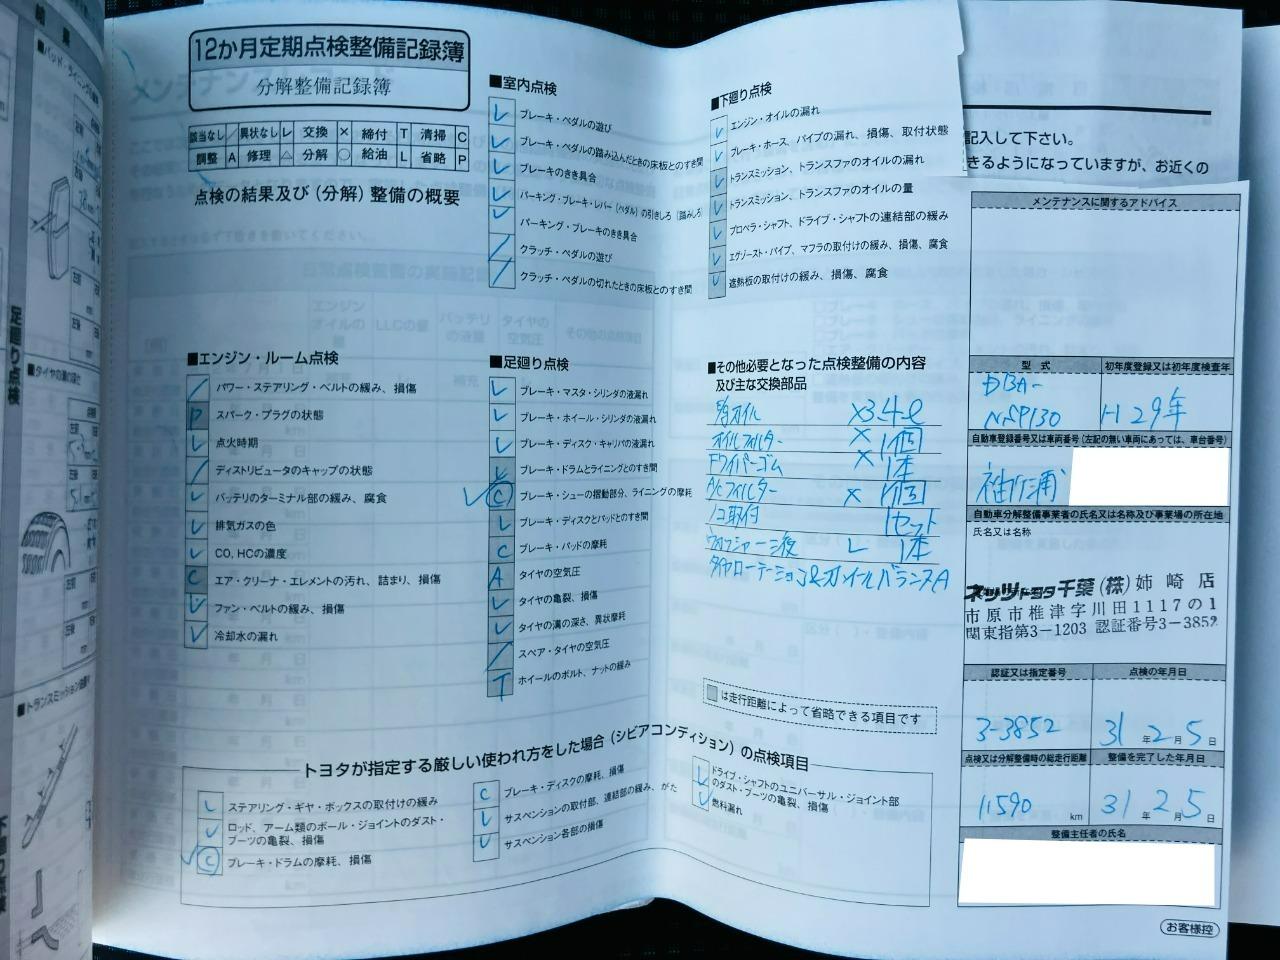 12か月定期点検整備記録簿
分解整備記録簿
該当なし / 異状なし レ 交換 × 締付 T 清掃 C
調整 A 修理 △ 分解 ○ 給油 L 省略 P
点検の結果及び(分解)整備の概要
■エンジン・ルーム点検
/ パワー・ステアリング・ベルトの緩み、損傷
P スパーク・プラグの状態
レ 点火時期
/ ディストリビュータのキャップの状態
レ バッテリのターミナル部の緩み、腐食
レ 排気ガスの色
レ CO, HCの濃度
C エア・クリーナ・エレメントの汚れ、詰まり、損傷
レ ファン・ベルトの緩み、損傷
レ 冷却水の漏れ
■室内点検
レ ブレーキ・ペダルの遊び
レ ブレーキ・ペダルの踏み込んだときの床板とのすき間
レ ブレーキのきき具合
レ パーキング・ブレーキ・レバー(ペダル)の引きしろ(踏みしろ)
レ パーキング・ブレーキのきき具合
/ クラッチ・ペダルの遊び
/ クラッチ・ペダルの切れたときの床板とのすき間
■足廻り点検
レ ブレーキ・マスタ・シリンダの液漏れ
レ ブレーキ・ホイール・シリンダの液漏れ
レ ブレーキ・ディスク・キャリパの液漏れ
レ ブレーキ・ドラムとライニングとのすき間
レ C ブレーキ・シューの摺動部分、ライニングの摩耗
レ ブレーキ・ディスクとパッドとのすき間
C ブレーキ・パッドの摩耗
A タイヤの空気圧
レ タイヤの亀裂、損傷
レ タイヤの溝の深さ、異状摩耗
/ スペア・タイヤの空気圧
T ホイールのボルト、ナットの緩み
■下廻り点検
レ エンジン・オイルの漏れ
レ ブレーキ・ホース、パイプの漏れ、損傷、取付状態
レ トランスミッション、トランスファのオイルの漏れ
レ トランスミッション、トランスファのオイルの量
レ プロペラ・シャフト、ドライブ・シャフトの連結部の緩み
レ エグゾースト・パイプ、マフラの取付けの緩み、損傷、腐食
レ 遮熱板の取付けの緩み、損傷、腐食
■その他必要となった点検整備の内容
及び主な交換部品
オイル ×3.4ℓ
オイルフィルター × 1個
Fワイパーゴム × 1本
A/Cフィルター × 1個
取付 1セット
ウォッシャー液 L 1本
タイヤローテーション&ホイールバランスA
は走行距離によって省略できる項目です
トヨタが指定する厳しい使われ方をした場合(シビアコンディション)の点検項目
レ ステアリング・ギヤ・ボックスの取付けの緩み
レ ロッド、アーム類のボール・ジョイントのダスト・
ブーツの亀裂、損傷
レ C ブレーキ・ドラムの摩耗、損傷
C ブレーキ・ディスクの摩耗、損傷
レ サスペンションの取付部、連結部の緩み、がた
レ サスペンション各部の損傷
レ ドライブ・シャフトのユニバーサル・ジョイント部
のダスト・ブーツの亀裂、損傷
レ 燃料漏れ
記入して下さい。
きるようになっていますが、お近くの
メンテナンスに関するアドバイス
型式 初年度登録又は初年度検査年
DBA-
NSP130 H29年
自動車登録番号又は車両番号(左記の無い車両にあっては、車台番号)
袖ヶ浦
自動車分解整備事業者の氏名又は名称及び事業場の所在地
氏名又は名称
ネッツトヨタ千葉(株)姉崎店
市原市椎津字川田1117の1
関東指第3-1203 認証番号3-3852
認証又は指定番号 点検の年月日
3-3852 31年2月5日
点検又は分解整備時の総走行距離 整備を完了した年月日
11590 km 31年2月5日
整備主任者の氏名
お客様控
足廻り点検
■パッド・ライニングの
■タイヤの溝の深さ
■トランスミッション